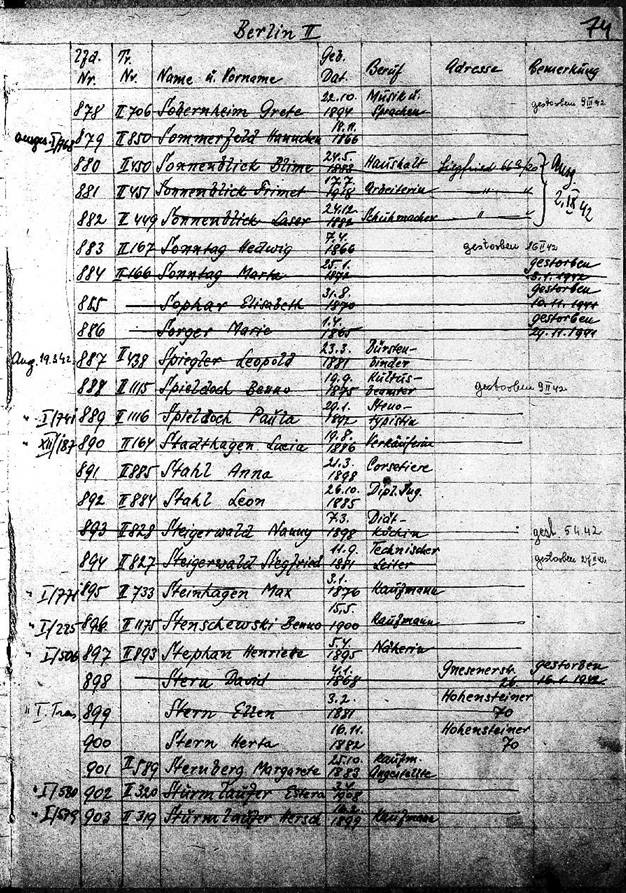 Berlin II 74
Lfd. Nr. Tr. Nr. Name u. Vorname Geb. Dat. Beruf Adresse Bemerkung
878 II 706 Sobernheim Grete 22.10. 1894 Musik u. Sprachen gestorben 9 II 42
879 II 850 Sommerfeld 18.11. 1866
880 II 450 Sonnenblick Blime 24.5. Haushalt Siegfried
881 II 451 Sonnenblick Primet 17.7. 1918 Arbeiterin " "
882 II 449 Sonnenblick Laser 24.12. 1882 Schuhmacher " " 2.IX 42
883 II 167 Sonntag Hedwig 7.4. 1866 gestorben 16 II 42
884 II 166 Sonntag Marta 25.1. 1872 gestorben 8.1.1942
885 Sophar Elisabeth 31.8. 1870 gestorben 10.11.1941
886 Sorger Marie 1.4. 1865 gestorben 29.11.1941
Ausg. 19.3.42 887 II 438 Spiegler Leopold 23.3. 1881 Bürsten-binder
888 II 1115 Spieldoch Benno 19.9. 1875 Kultus-beamter gestorben 9 II 42
" I/741 889 II 1116 Spieldoch Paula 29.1. Steno-typistin
" XII/187 890 II 164 Stadthagen Lucia 19.8. 1886 Verkäuferin
891 II 885 Stahl Anna 21.3. 1898 Corsetiere
892 II 884 Stahl Leon 26.10. 1885 Dipl. Ing.
893 II 828 Steigerwald Nanny 7.3. 1898 Diät-Köchin gest. 5 4.42
894 II 827 Steigerwald Siegfried 11.9. 1881 Technischer Leiter gestorben
" I/771 895 II 733 Steinhagen Max 3.1. 1876 Kaufmann
" I/225 896 II 1175 Stenschewski Benno 15.5. 1900 Kaufmann
" I/506 897 II 893 Stephan Henriete 5.4. 1895 Näherin
898 Stern David 4.1. 1868 Gnesenerstr. 26 gestorben 16.1.1942
" I. Tra. 899 Stern Ellen 3.2. 1881 Hohensteiner 70
900 Stern Herta 16.11. 1882 Hohensteiner 70
901 II 589 Sternberg Margarete 25.10. 1883 Kaufm. Angestellte
" I/580 902 II 320 Sturmlaufer Estera 1908
" I/579 903 II 319 Sturmlaufer Hersch 1899 Kaufmann